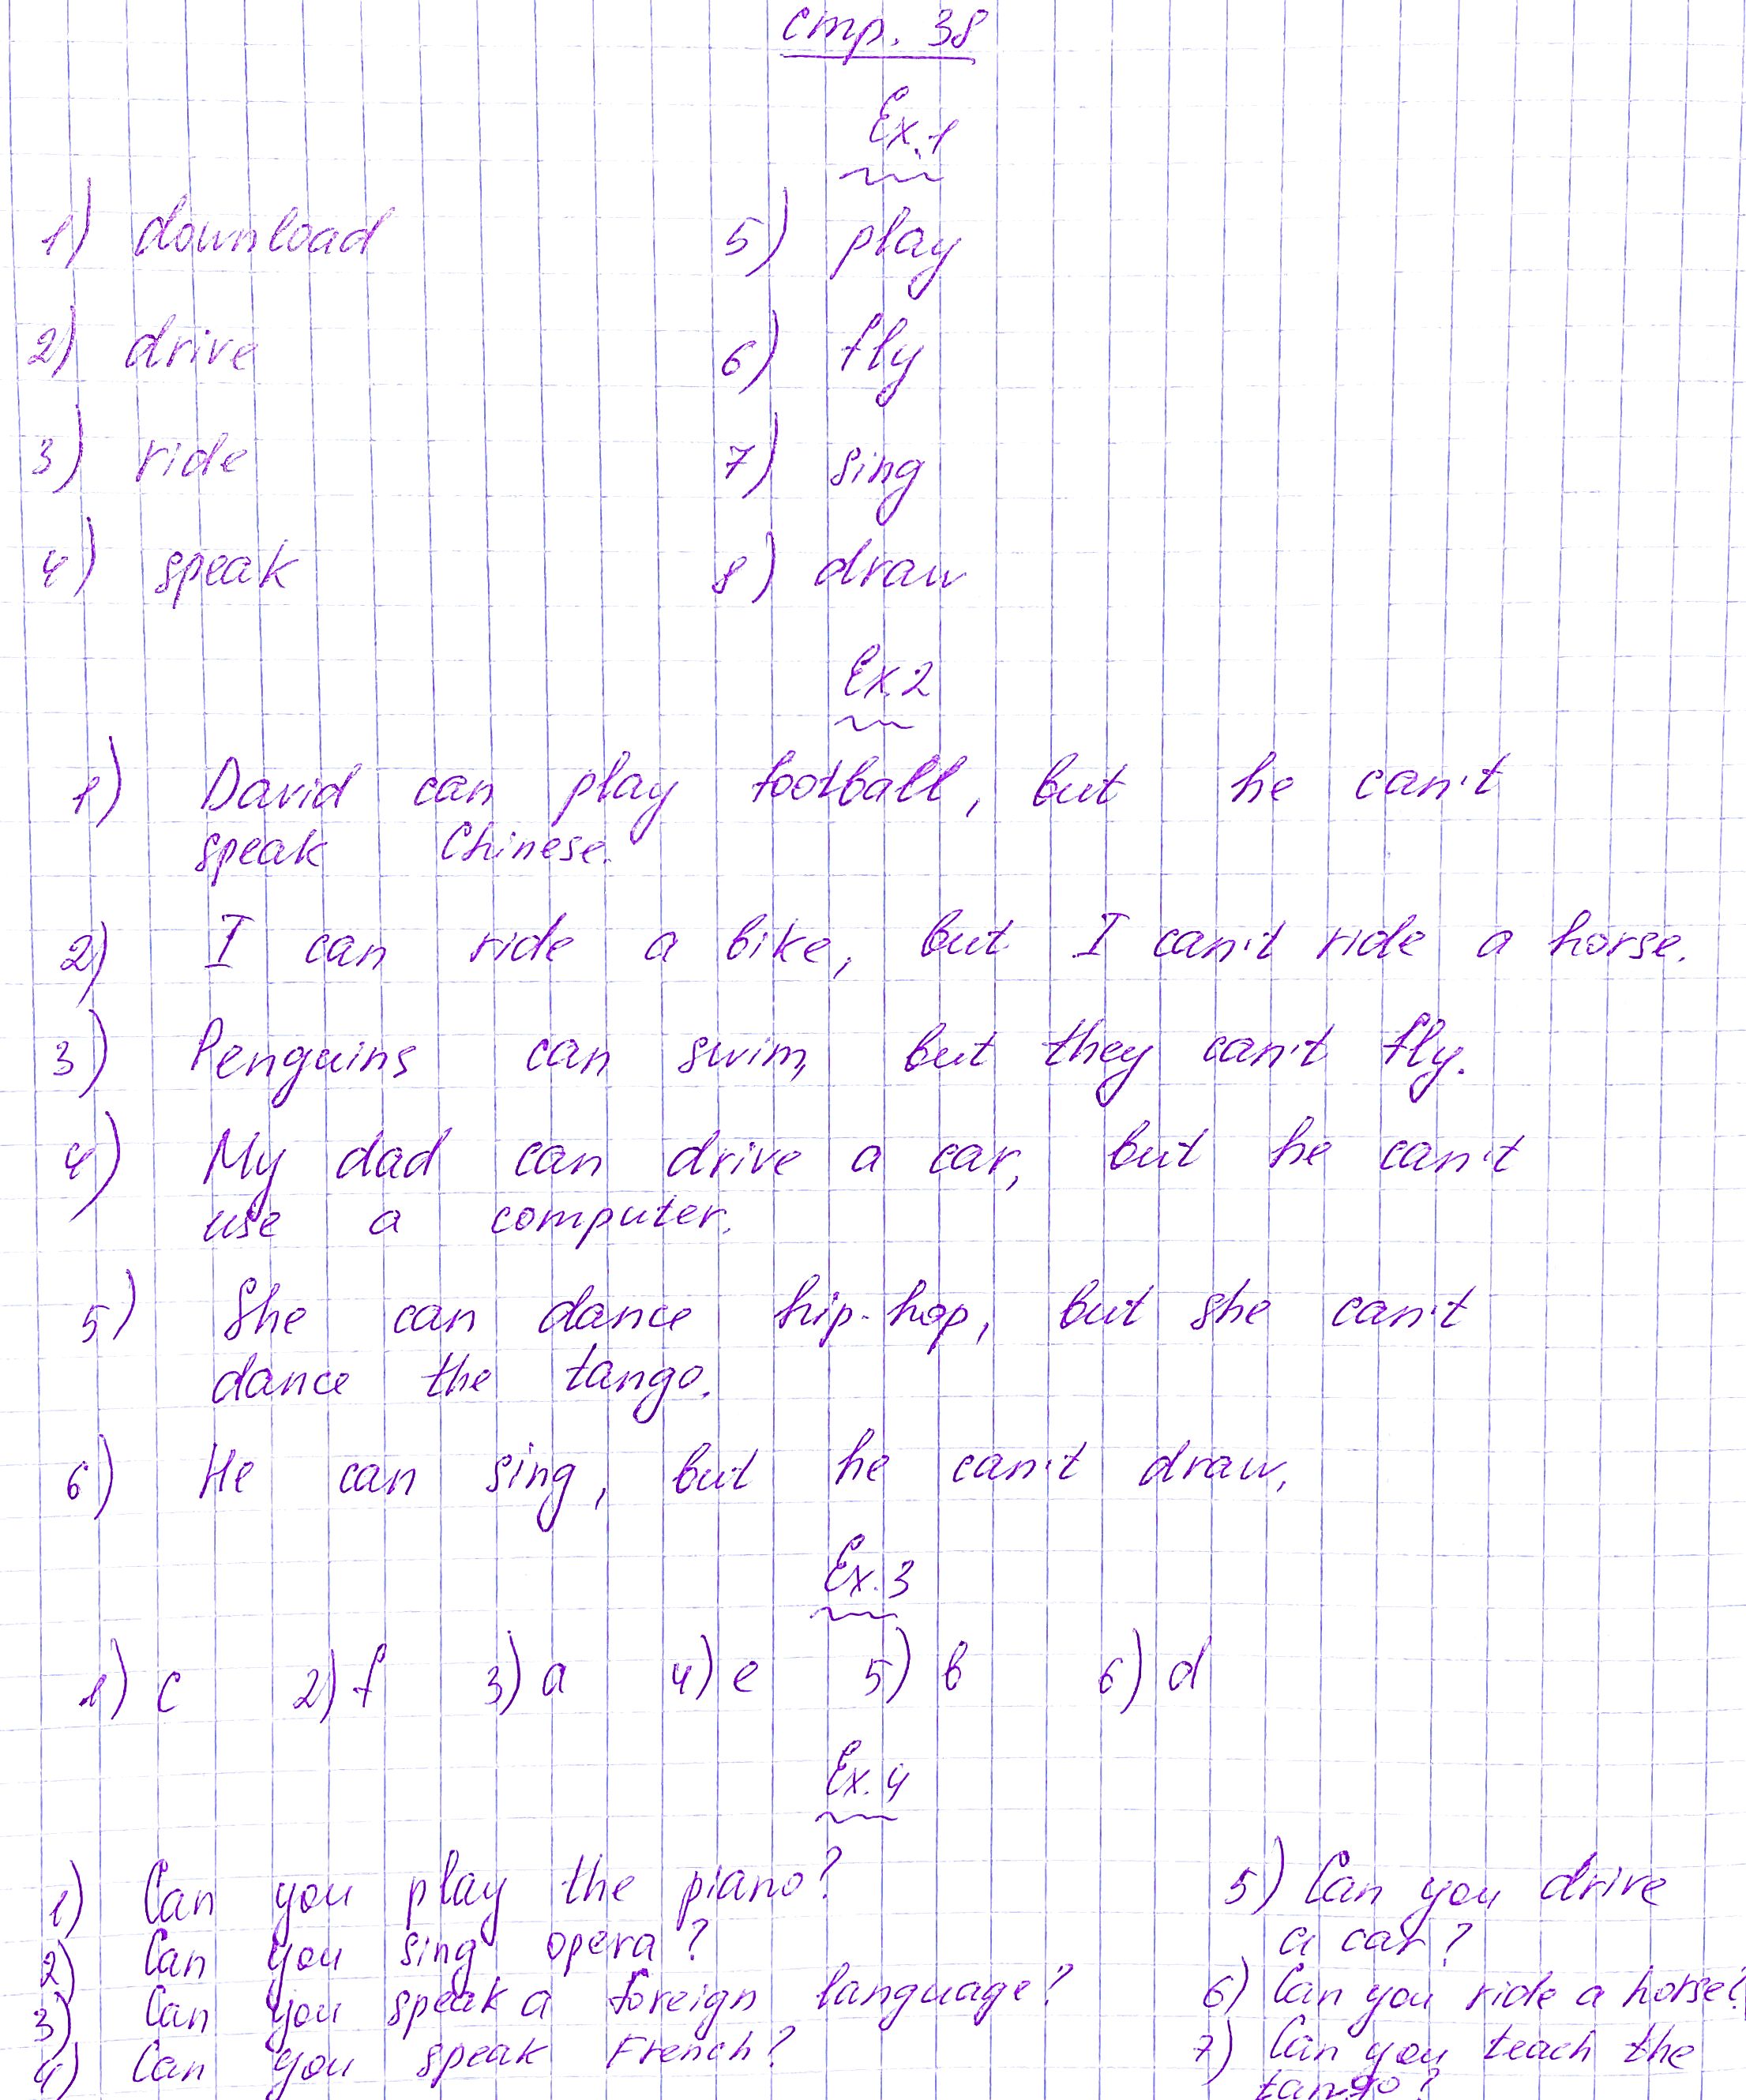 стр. 38
Ex.1
1) download
2) drive
3) ride
4) speak
5) play
6) fly
7) sing
8) draw
Ex.2
1) David can play football, but he can't
speak Chinese.
2) I can ride a bike, but I can't ride a horse.
3) Penguins can swim, but they can't fly.
4) My dad can drive a car, but he can't
use a computer.
5) She can dance hip-hop, but she can't
dance the tango.
6) He can sing, but he can't draw.
Ex.3
1) c 2) f 3) a 4) e 5) b 6) d
Ex.4
1) Can you play the piano?
2) Can you sing opera?
3) Can you speak a foreign language?
4) Can you speak French?
5) Can you drive
a car?
6) Can you ride a horse?
7) Can you teach the
tango?